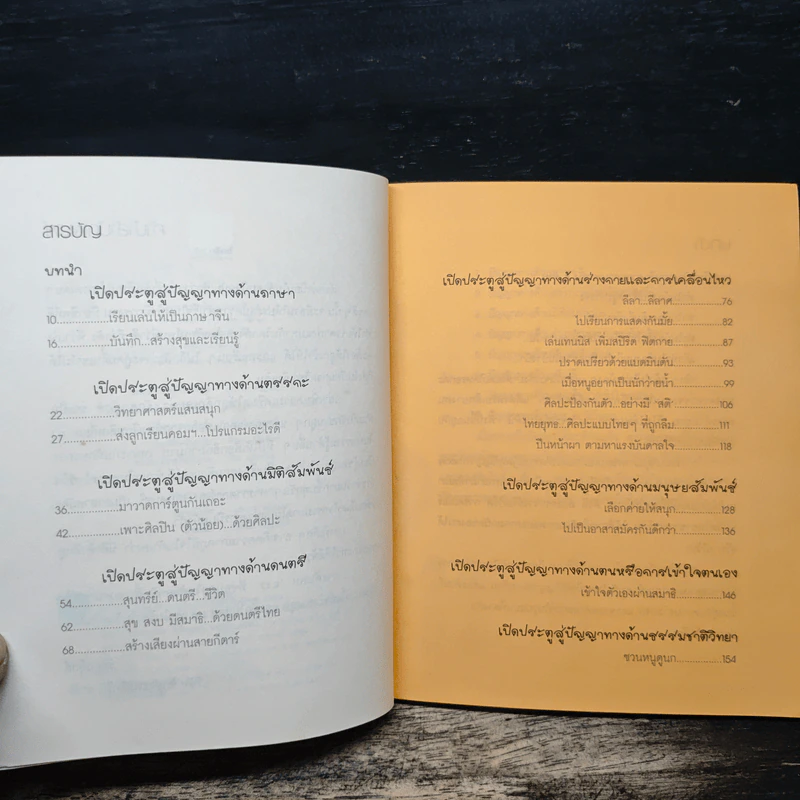 สารบัญ
บทนำ
เปิดประตูสู่ปัญญาทางด้านภาษา
10..............เรียนเล่นให้เป็นภาษาจีน
16..............บันทึก...สร้างสุขและเรียนรู้
เปิดประตูสู่ปัญญาทางด้านตรรกะ
22..............วิทยาศาสตร์แสนสนุก
27..............ส่งลูกเรียนคอมฯ...โปรแกรมอะไรดี
เปิดประตูสู่ปัญญาทางด้านมิติสัมพันธ์
36..............มาวาดการ์ตูนกันเถอะ
42..............เพาะศิลปิน (ตัวน้อย)...ด้วยศิลปะ
เปิดประตูสู่ปัญญาทางด้านดนตรี
54..............สุนทรีย์...ดนตรี...ชีวิต
62..............สุข สงบ มีสมาธิ...ด้วยดนตรีไทย
68..............สร้างเสียงผ่านสายกีตาร์
เปิดประตูสู่ปัญญาทางด้านร่างกายและการเคลื่อนไหว
ลีลา...ลีลาศ..............76
ไปเรียนการแสดงกันมั้ย..............82
เล่นเทนนิส เพิ่มสปิริต ฟิตกาย..............87
ปราดเปรียวด้วยแบดมินตัน..............93
เมื่อหนูอยากเป็นนักว่ายน้ำ..............99
ศิลปะป้องกันตัว...อย่างมี "สติ"..............106
ไทยยุทธ...ศิลปะแบบไทยๆ ที่ถูกลืม..............111
ปีนหน้าผา ตามหาแรงบันดาลใจ..............118
เปิดประตูสู่ปัญญาทางด้านมนุษยสัมพันธ์
เลือกค่ายให้สนุก..............128
ไปเป็นอาสาสมัครกันดีกว่า..............136
เปิดประตูสู่ปัญญาทางด้านตนหรือการเข้าใจตนเอง
เข้าใจตัวเองผ่านสมาธิ..............146
เปิดประตูสู่ปัญญาทางด้านธรรมชาติวิทยา
ชวนหนูดูนก..............154